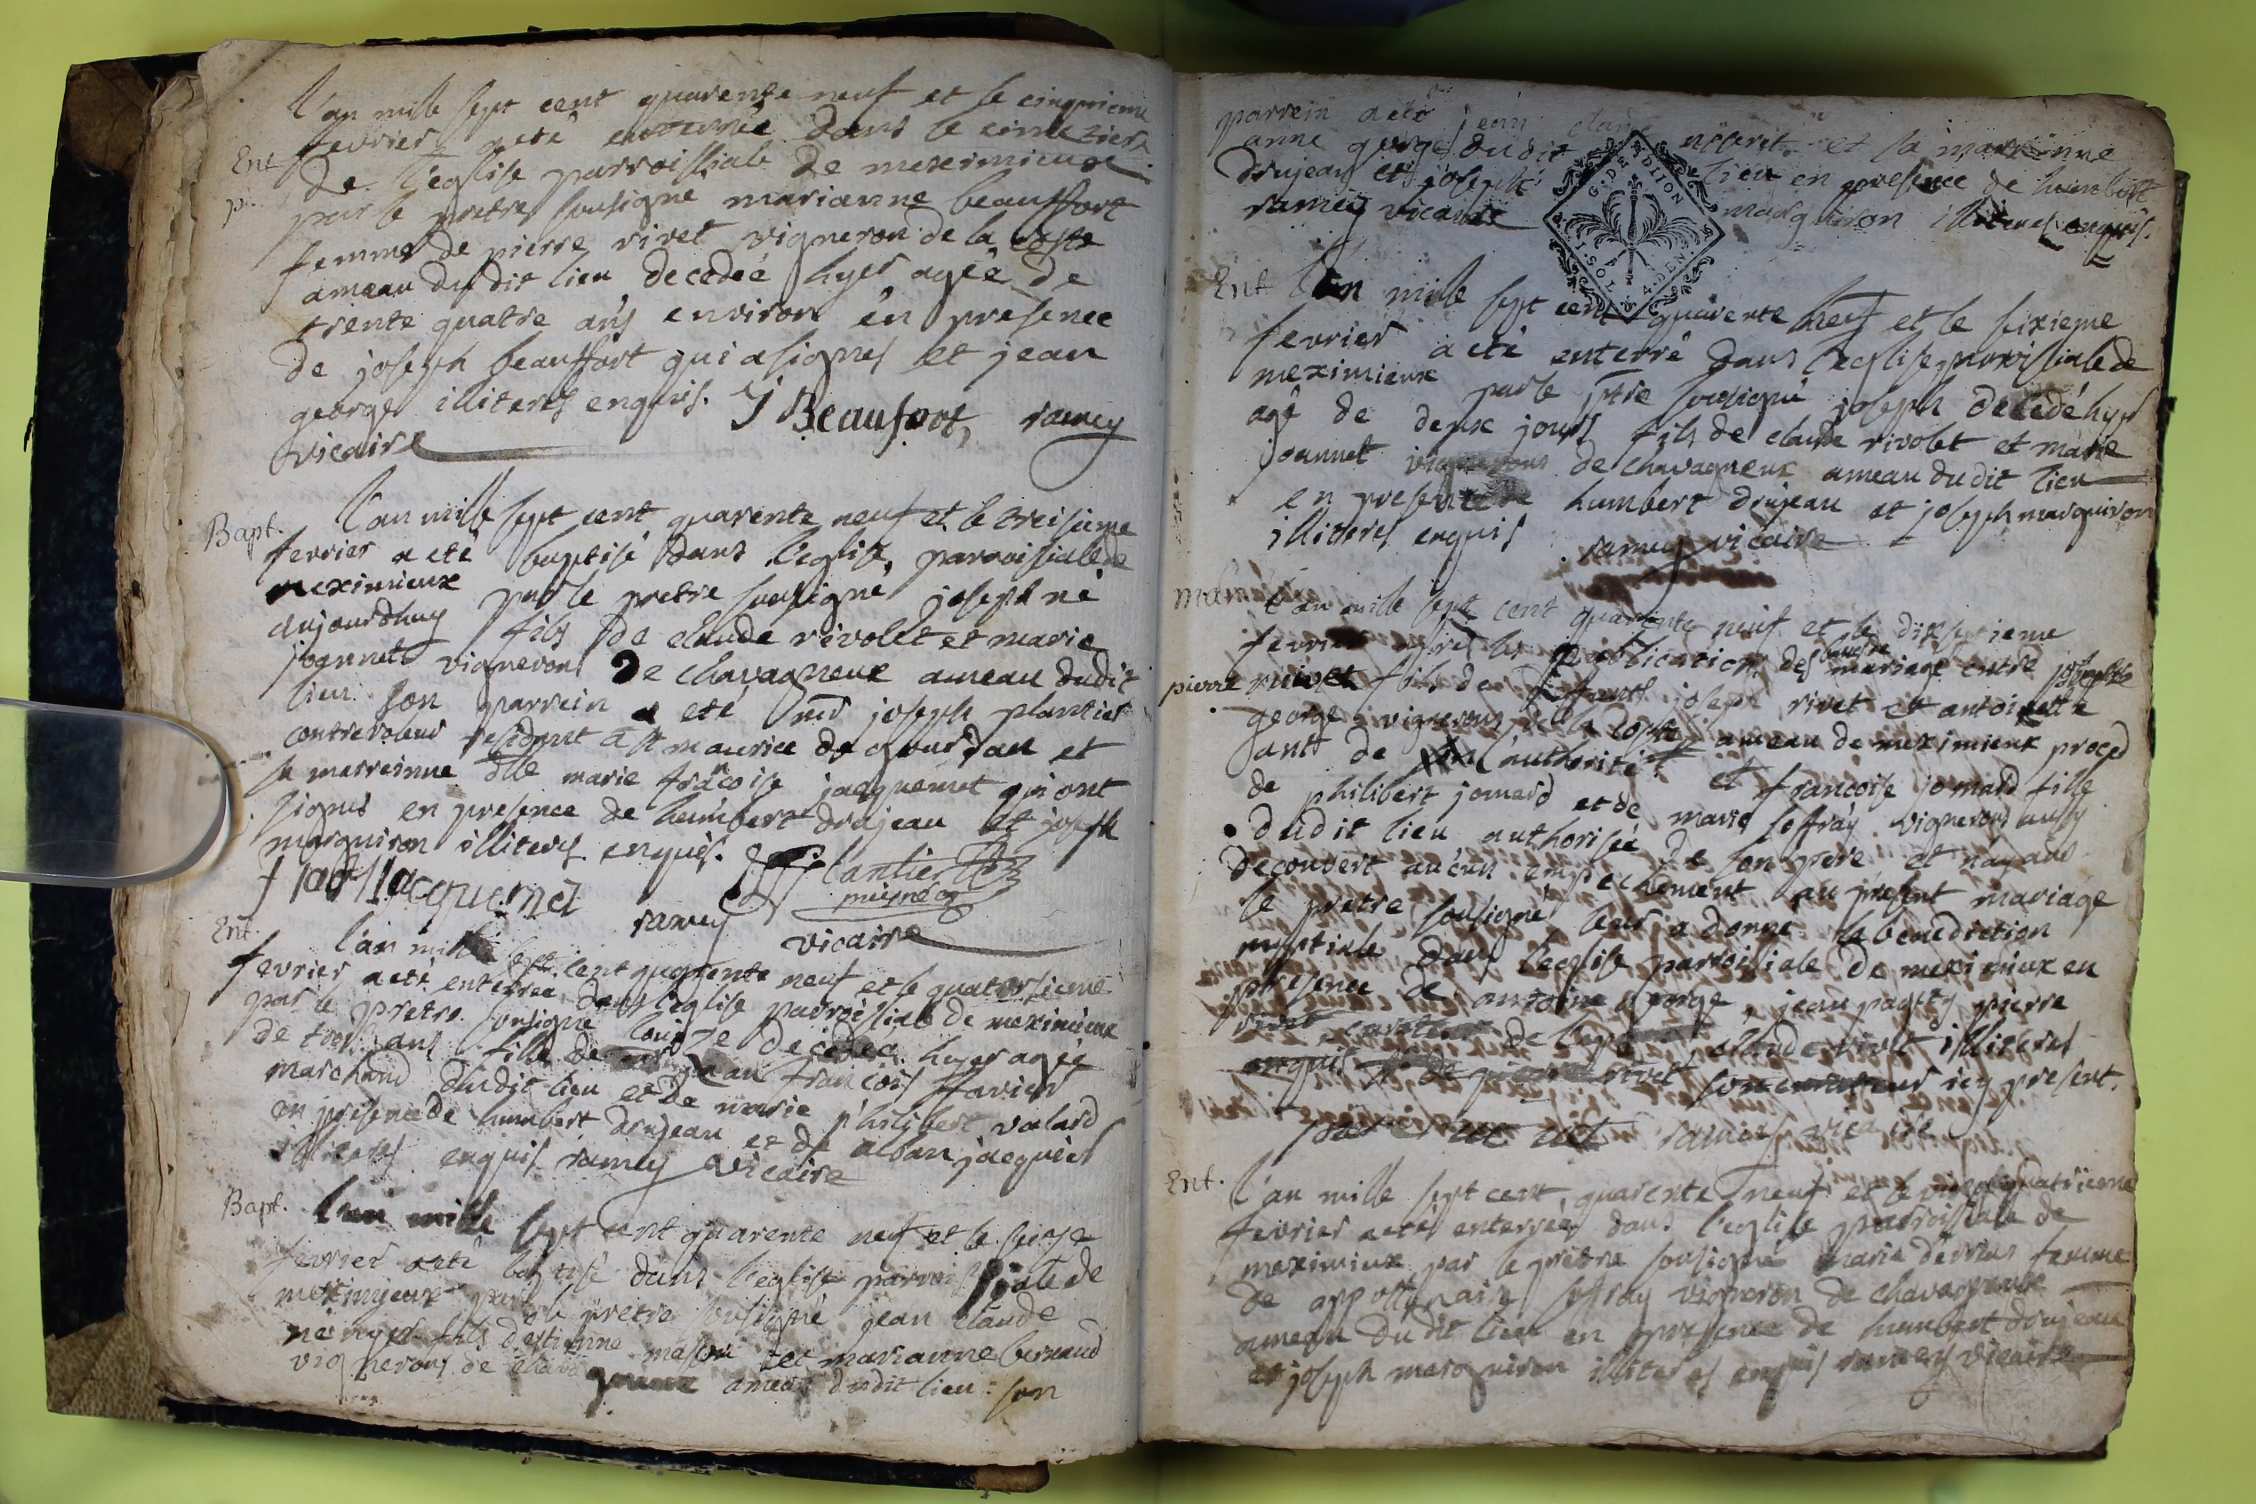 l'an mille sept cent quarente neuf et le cinquieme
Ent fevrier a eté enterrée dans le cimetiere
de l'eglise parroissiale de meximieux
par le pretre sousigné marianne beauffort
femme de pierre rivet vigneron de la coste
ameau dudit lieu decedeé hyer ageê de
trente quatre ans environ en presence
de joseph beauffort qui a signés et jean
george illiterés enquis. J Beaufort, ramey
vicaire
Bapt. l'an mille sept cent quarente neuf et le treisieme
fevrier a eté baptisé dans l'eglise parroissiale de
meximieux par le pretre sousigné joseph né
aujourdhuy fils de claude rivollet et marie
joannet vignerons de chavagneux ameau dudit
lieu son parrein a eté joseph plantier
controleur residant a st maurice de gourdan et
sa marreinne dlle marie francoise jacquemet qui ont
signés en presence de humbert drujeau et joseph
marquiron illiterés enquis.
Jacquemet Plantier
ramey vicaire
Ent. l'an mille sept cent quarente neuf et le quatorsieme
fevrier a eté enterrée dans l'eglise parroissiale de meximieux
par le pretre sousigné louise decedeé hyer ageé
de trois ans fille de jean francois favier
marchand dudit lieu et de marie philibert valard
en presence de humbert drujeau et de alban jacquier
illiterés enquis ramey vicaire
Bapt. l'an mille sept cent quarente neuf et le seise
fevrier a eté baptisé dans l'eglise parroissiale de
meximieux par le pretre sousigné jean claude
né hyer fils d'estienne et marianne bernard
vignerons de chavagneux ameau dudit lieu: son
parrein a eté jean claude et sa marreinne
anne george dudit lieu en presence de humbert
drujeau et joseph marquiron illiterés enquis.
ramey vicaire
G. DE DIJON
SOL
4. DEN.
Ent l'an mille sept cent quarente neuf et le sixieme
fevrier a eté enterré dans l'eglise parroissiale de
meximieux par le ptre sousigné joseph decedé hyer
agé de deux jours fils de claude rivolet et marie
joannet vignerons de chavagneux ameau dudit lieu
en presence de humbert drujeau et joseph marquiron
illiterés enquis ramey vicaire
l'an mille sept cent quarente neuf et le dix septieme
fevrier apres les publications des bans de mariage entre
pierre rivet fils de deffunts joseph rivet et antoinette
george vignerons de la coste ameau de meximieux proced
ant de l'authorité et francoise jomard fille
de philibert jomard et de marie joffray vignerons aussy
dudit lieu authorisée de son pere et n'ayant
decouvert aucun empechement au present mariage
le pretre sousigné leur a donné la benediction
nuptiale dans l'eglise parroissiale de meximieux en
presence de antoine george, jean pagety pierre
rivet illiterés
enquis rivet son curateur icy present.
ramey vicaire
Ent. l'an mille sept cent quarente neuf et le vingt quatrieme
fevrier a eté enterrée dans l'eglise parroissiale de
meximieux par le pretre sousigné marie femme
de joffray vigneron de chavagneux
ameau dudit lieu en presence de humbert drujeau
et joseph marquiron illiterés enquis ramey vicaire